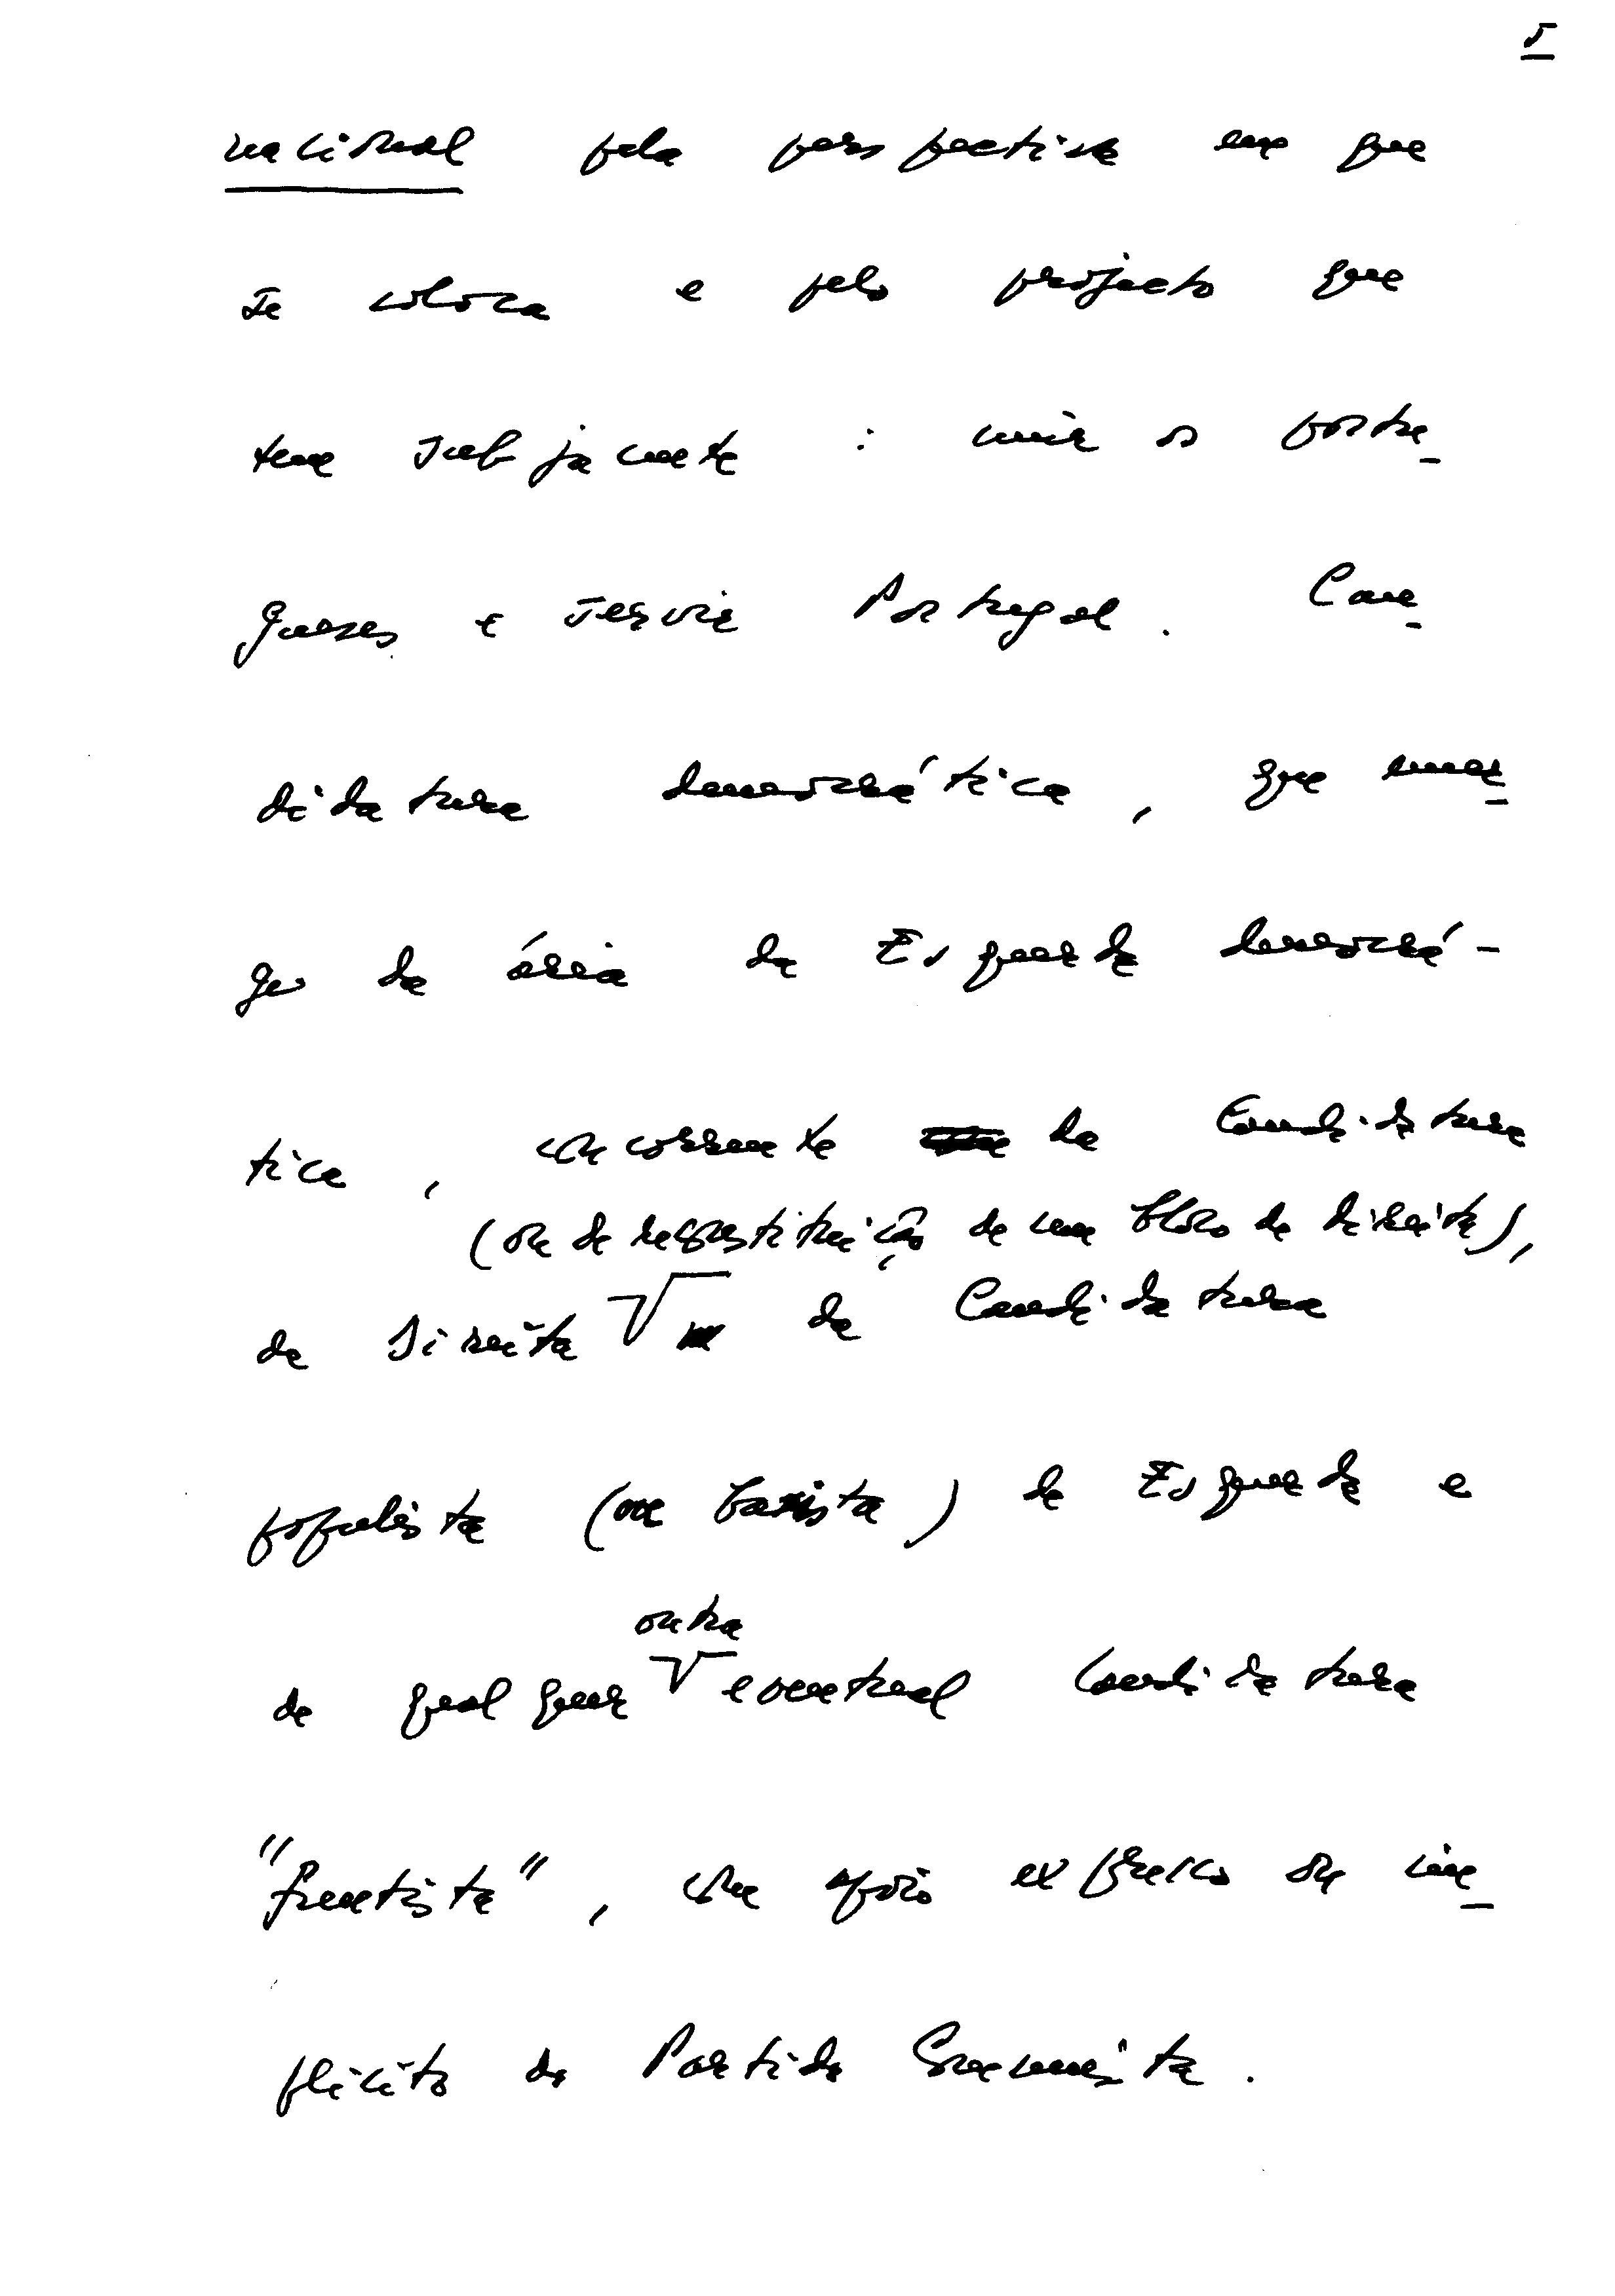 5
nacional pela perspectiva em que
se coloca e pelo projecto que
tem subjacente : unir os portu-
gueses e servir Portugal. Can-
didatura democrática, que emer-
ge da área da Esquerda democrá-
tica, concorrente da Candidatura
(ou de reconstituição de um bloco de direita),
da Direita da Candidatura
populista (ou basista) de Esquerda e
outra
de qualquer eventual Candidatura
"frentista", com apoio expresso ou im-
plícito do Partido Comunista.